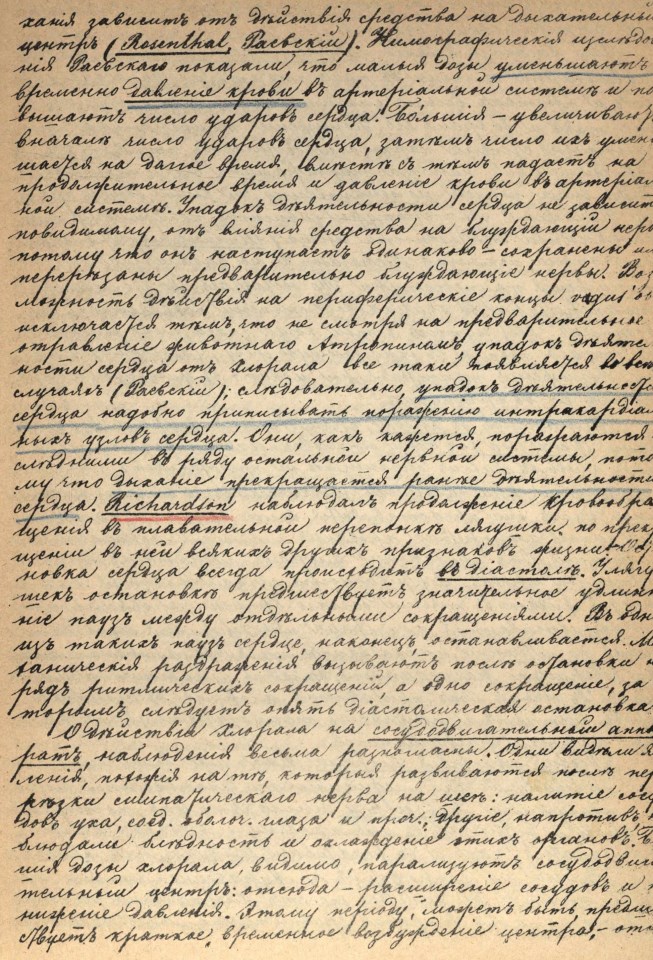 ханія зависитъ отъ дѣйствія средства на дыхательный
центръ (Rosenthal, Раевскій). Кимографическія изслѣдо
нія Раевскаго показали, что малыя дозы уменьшаютъ
временно давленіе крови въ артеріальной системѣ и по
вышаютъ число ударовъ сердца. Бо́льшія – увеличиваю
вначалѣ число ударовъ сердца, затѣмъ число ихъ умен
шается на долгое время, вмѣстѣ съ тѣмъ падаетъ на
продолжительное время и давленіе крови въ артеріал
ной системѣ. Упадокъ дѣятельности сердца не зависитъ
повидимому, отъ вліянія средства на блуждающій нерв
потому что онъ наступаетъ одинаково – сохранены ил
перерѣзаны предварительно блуждающіе нервы. Воз
можность дѣйствія на периферическіе концы vagus'овъ
исключается тѣмъ, что не смотря на предварительное
отравленіе животнаго Атропиномъ упадокъ дѣяте
ности сердца отъ хлорала все таки появляется во всѣ
случаяхъ (Раевскій); слѣдовательно, упадокъ дѣятельнос
сердца надобно приписывать пораженію интракардіа
ныхъ узловъ сердца. Они, какъ кажется, поражаются
слѣдними въ ряду остальной нервной системы, пото
му что дыханіе прекращается ранѣе дѣятельности
сердца. Richardson наблюдалъ продолженіе кровообра
щенія въ плавательной перепонкѣ лягушки по прек
щеніи въ ней всякихъ другихъ признаковъ жизни. Ост
новка сердца всегда происходитъ въ діастолѣ. У лягу
шекъ остановкѣ предшествуетъ значительное удлин
ніе паузъ между отдѣльными сокращеніями. Въ одн
изъ такихъ паузъ сердце, наконецъ, останавливается. Ме
ханическія раздраженія вызываютъ послѣ остановки н
рядъ ритмическихъ сокращеній, а одно сокращеніе, за
торымъ слѣдуетъ опять діастолическая остановка.
О дѣйствіи хлорала на сосудодвигательный аппа
ратъ, наблюденія весьма разногласны. Одни видѣли я
ленія, похожія на тѣ, которыя развиваются послѣ пер
рѣзки симпатическаго нерва на шеѣ: налитіе сосу
довъ уха, соед. оболоч. глаза и проч.; другіе, напротивъ, н
блюдали блѣдность и охлажденіе этихъ органовъ. Б
шія дозы хлорала, видимо, парализуютъ сосудодвиг
тельный центръ: отсюда – расширеніе сосудовъ и п
ниженіе давленія. Этому періоду, можетъ быть, предш
ствуетъ краткое, временное возбужденіе центра, – отс